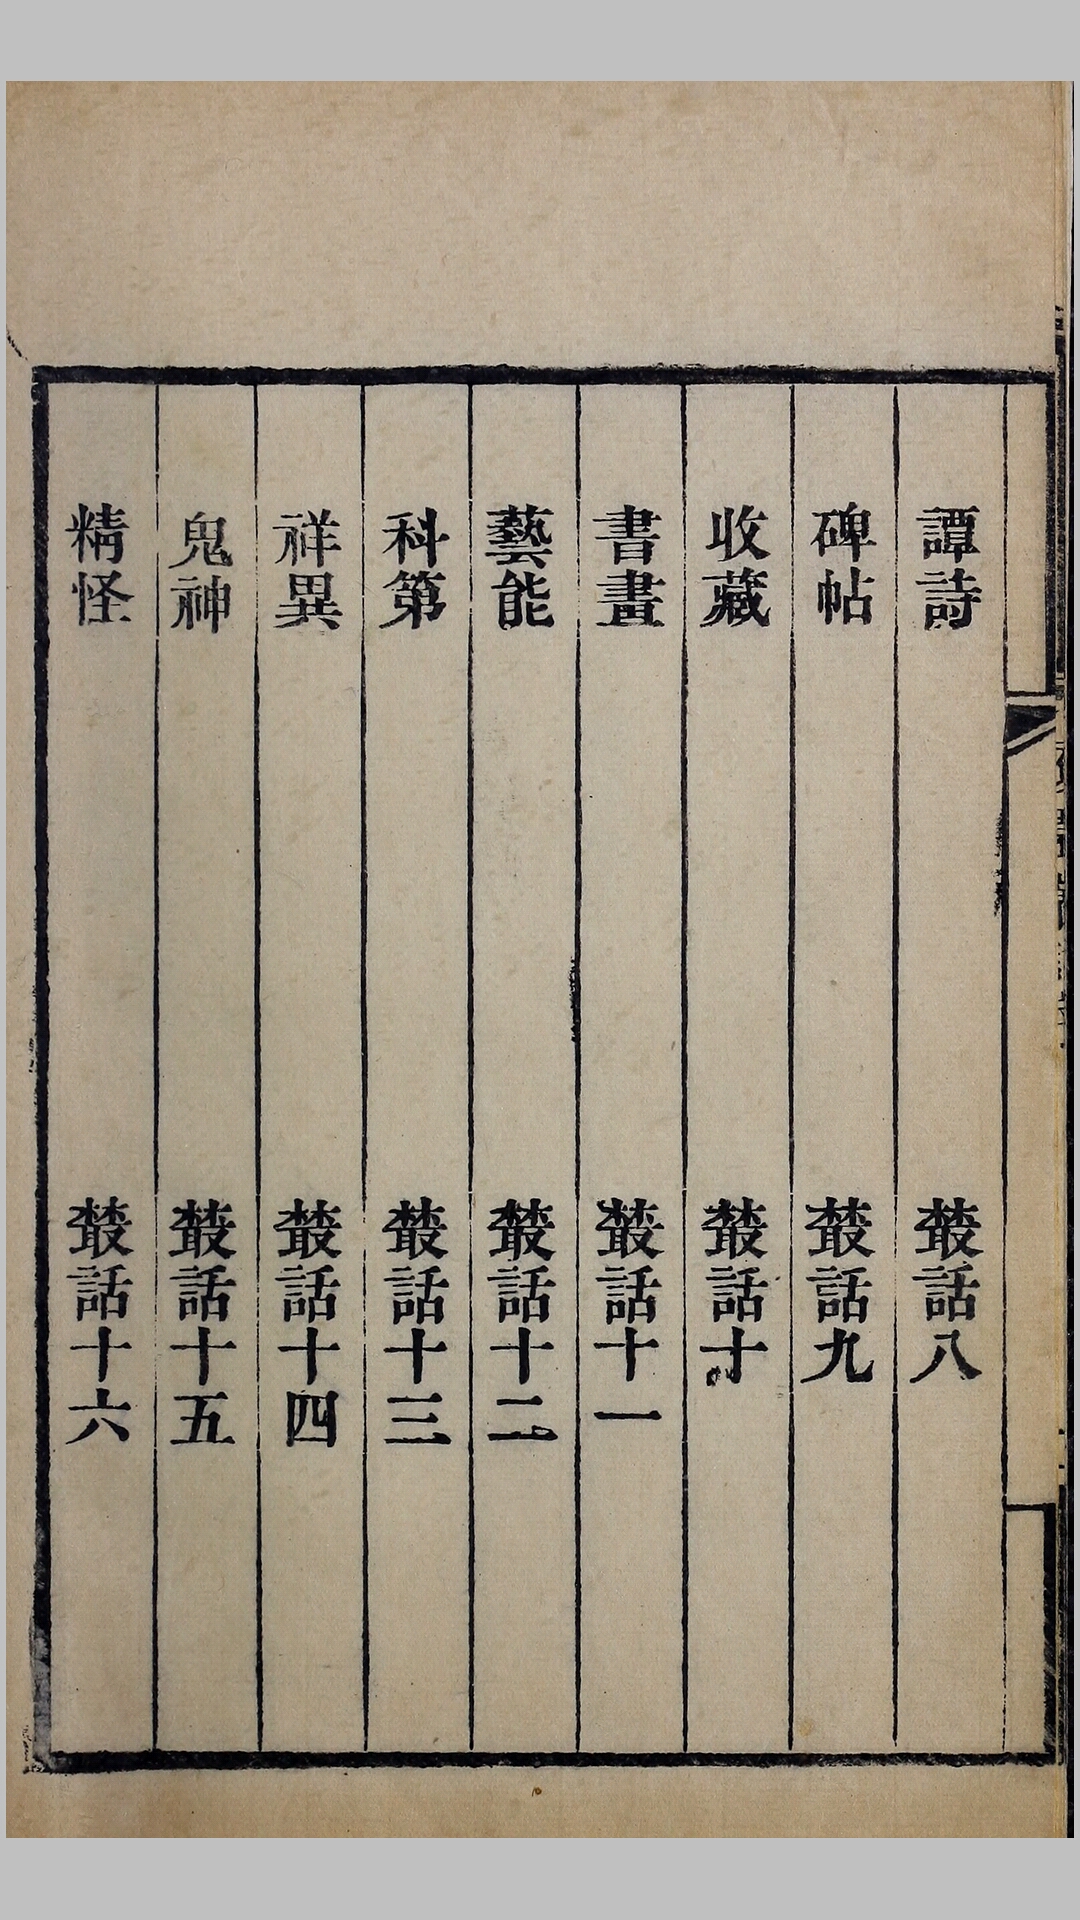 譚詩 叢話八
碑帖 叢話九
收藏 叢話十
書畫 叢話十一
藝能 叢話十二
科第 叢話十三
祥異 叢話十四
鬼神 叢話十五
精怪 叢話十六